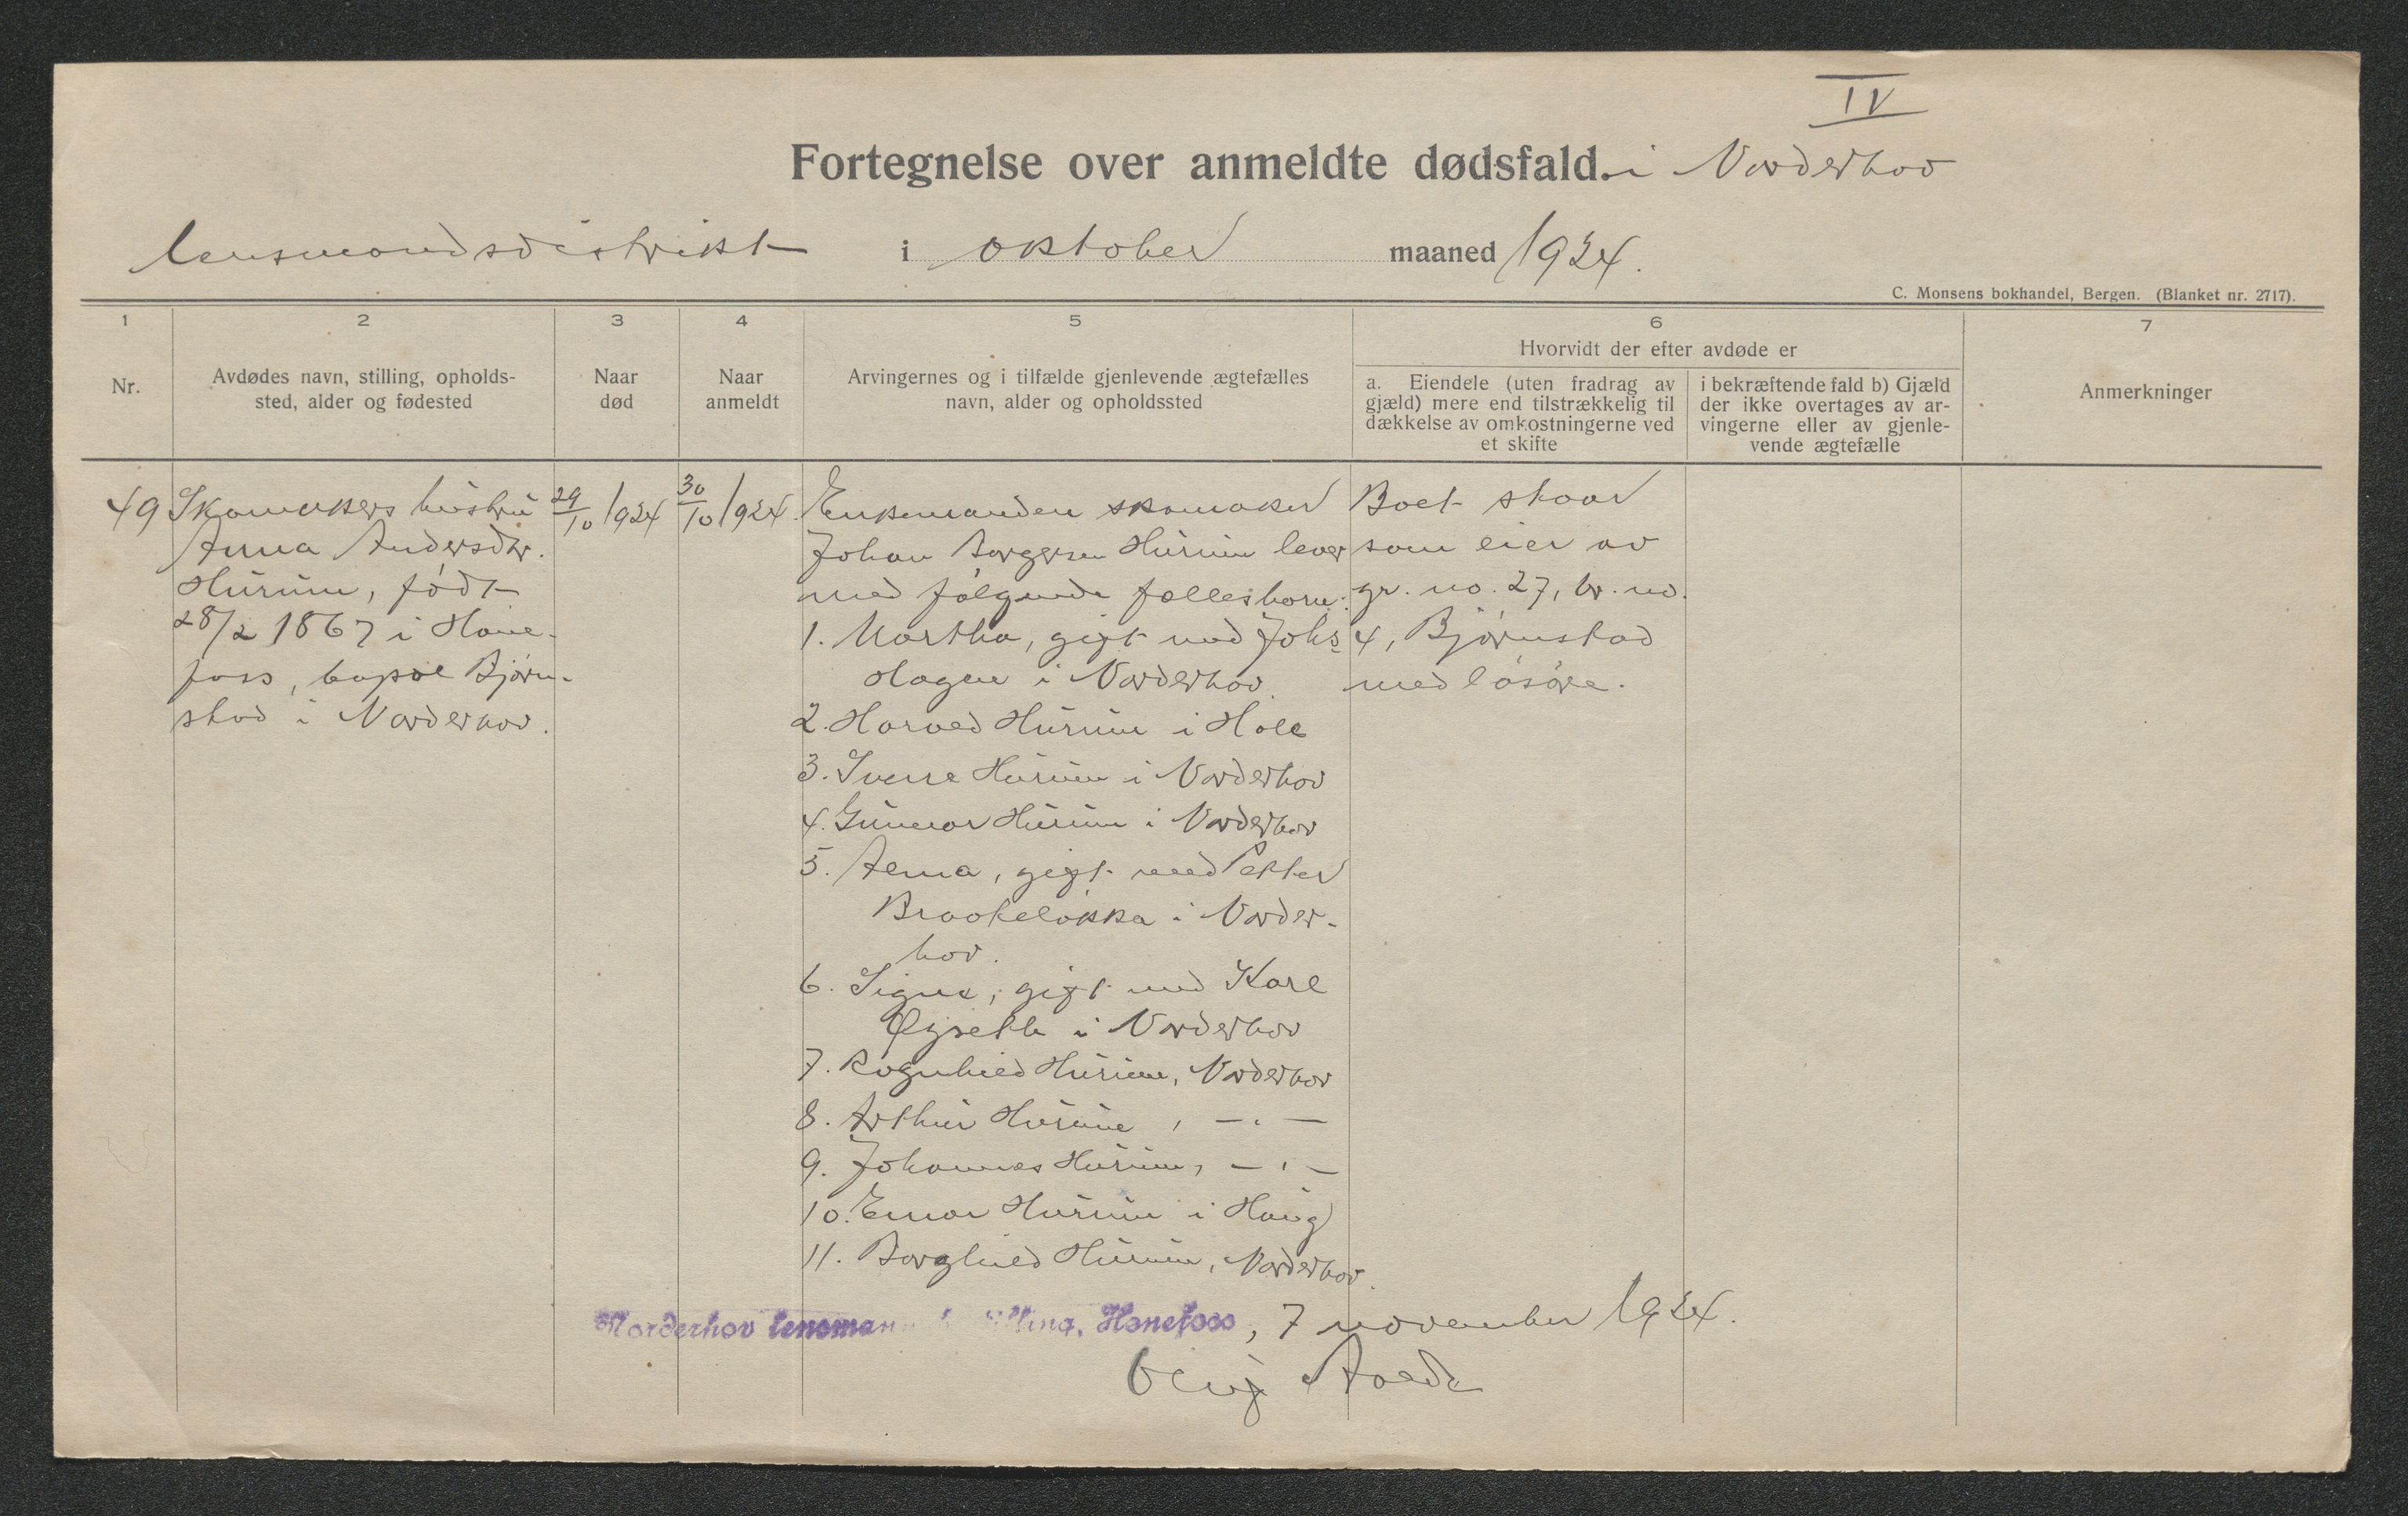 IV
Fortegnelse over anmeldte dødsfald. i Norderhov
lensmandsdistrikt i oktober maaned 1924.
C. Monsens bokhandel, Bergen. (Blanket nr. 2717).
1 2 3 4 5 6 7
Nr.
Avdødes navn, stilling, opholds-
sted, alder og fødested
Naar
død
Naar
anmeldt
Arvingernes og i tilfælde gjenlevende ægtefælles
navn, alder og opholdssted
Hvorvidt der efter avdøde er
a. Eiendele (uten fradrag av
gjæld) mere end tilstrækkelig til
dækkelse av omkostningerne ved
et skifte
i bekræftende fald b) Gjæld
der ikke overtages av ar-
vingerne eller av gjenle-
vende ægtefælle
Anmerkninger
49
Skomakers hustru
Anna Andersdtr.
Hurum, født
28/2 1867 i Høne-
foss, bopæl Bjørn-
stad i Norderhov.
29/10 1924
30/10 1924.
Enkemanden skomaker
Johan Hurum lever
med følgende fællesbarn:
1. Martha, gift med Johs
Hagen i Norderhov.
2. Harald Hurum i Hole
3. Sverre Hurum i Norderhov
4. Gunnar Hurum i Norderhov
5. Anna, gift med Petter
Braakeløkka i Norder-
hov.
6. Signe, gift med Karl
Øysetle i Norderhov
7. Ragnhild Hurum, Norderhov
8. Arthur Hurum, - " -
9. Johannes Hurum, - " -
10. Einar Hurum i Haug
11. Borghild Hurum, Norderhov.
Boet staar
som eier av
gr. no. 27, br. no.
4, Bjørnstad
med løsøre.
Norderhov lensmannsbestilling, Hønefoss, 7 november 1924.